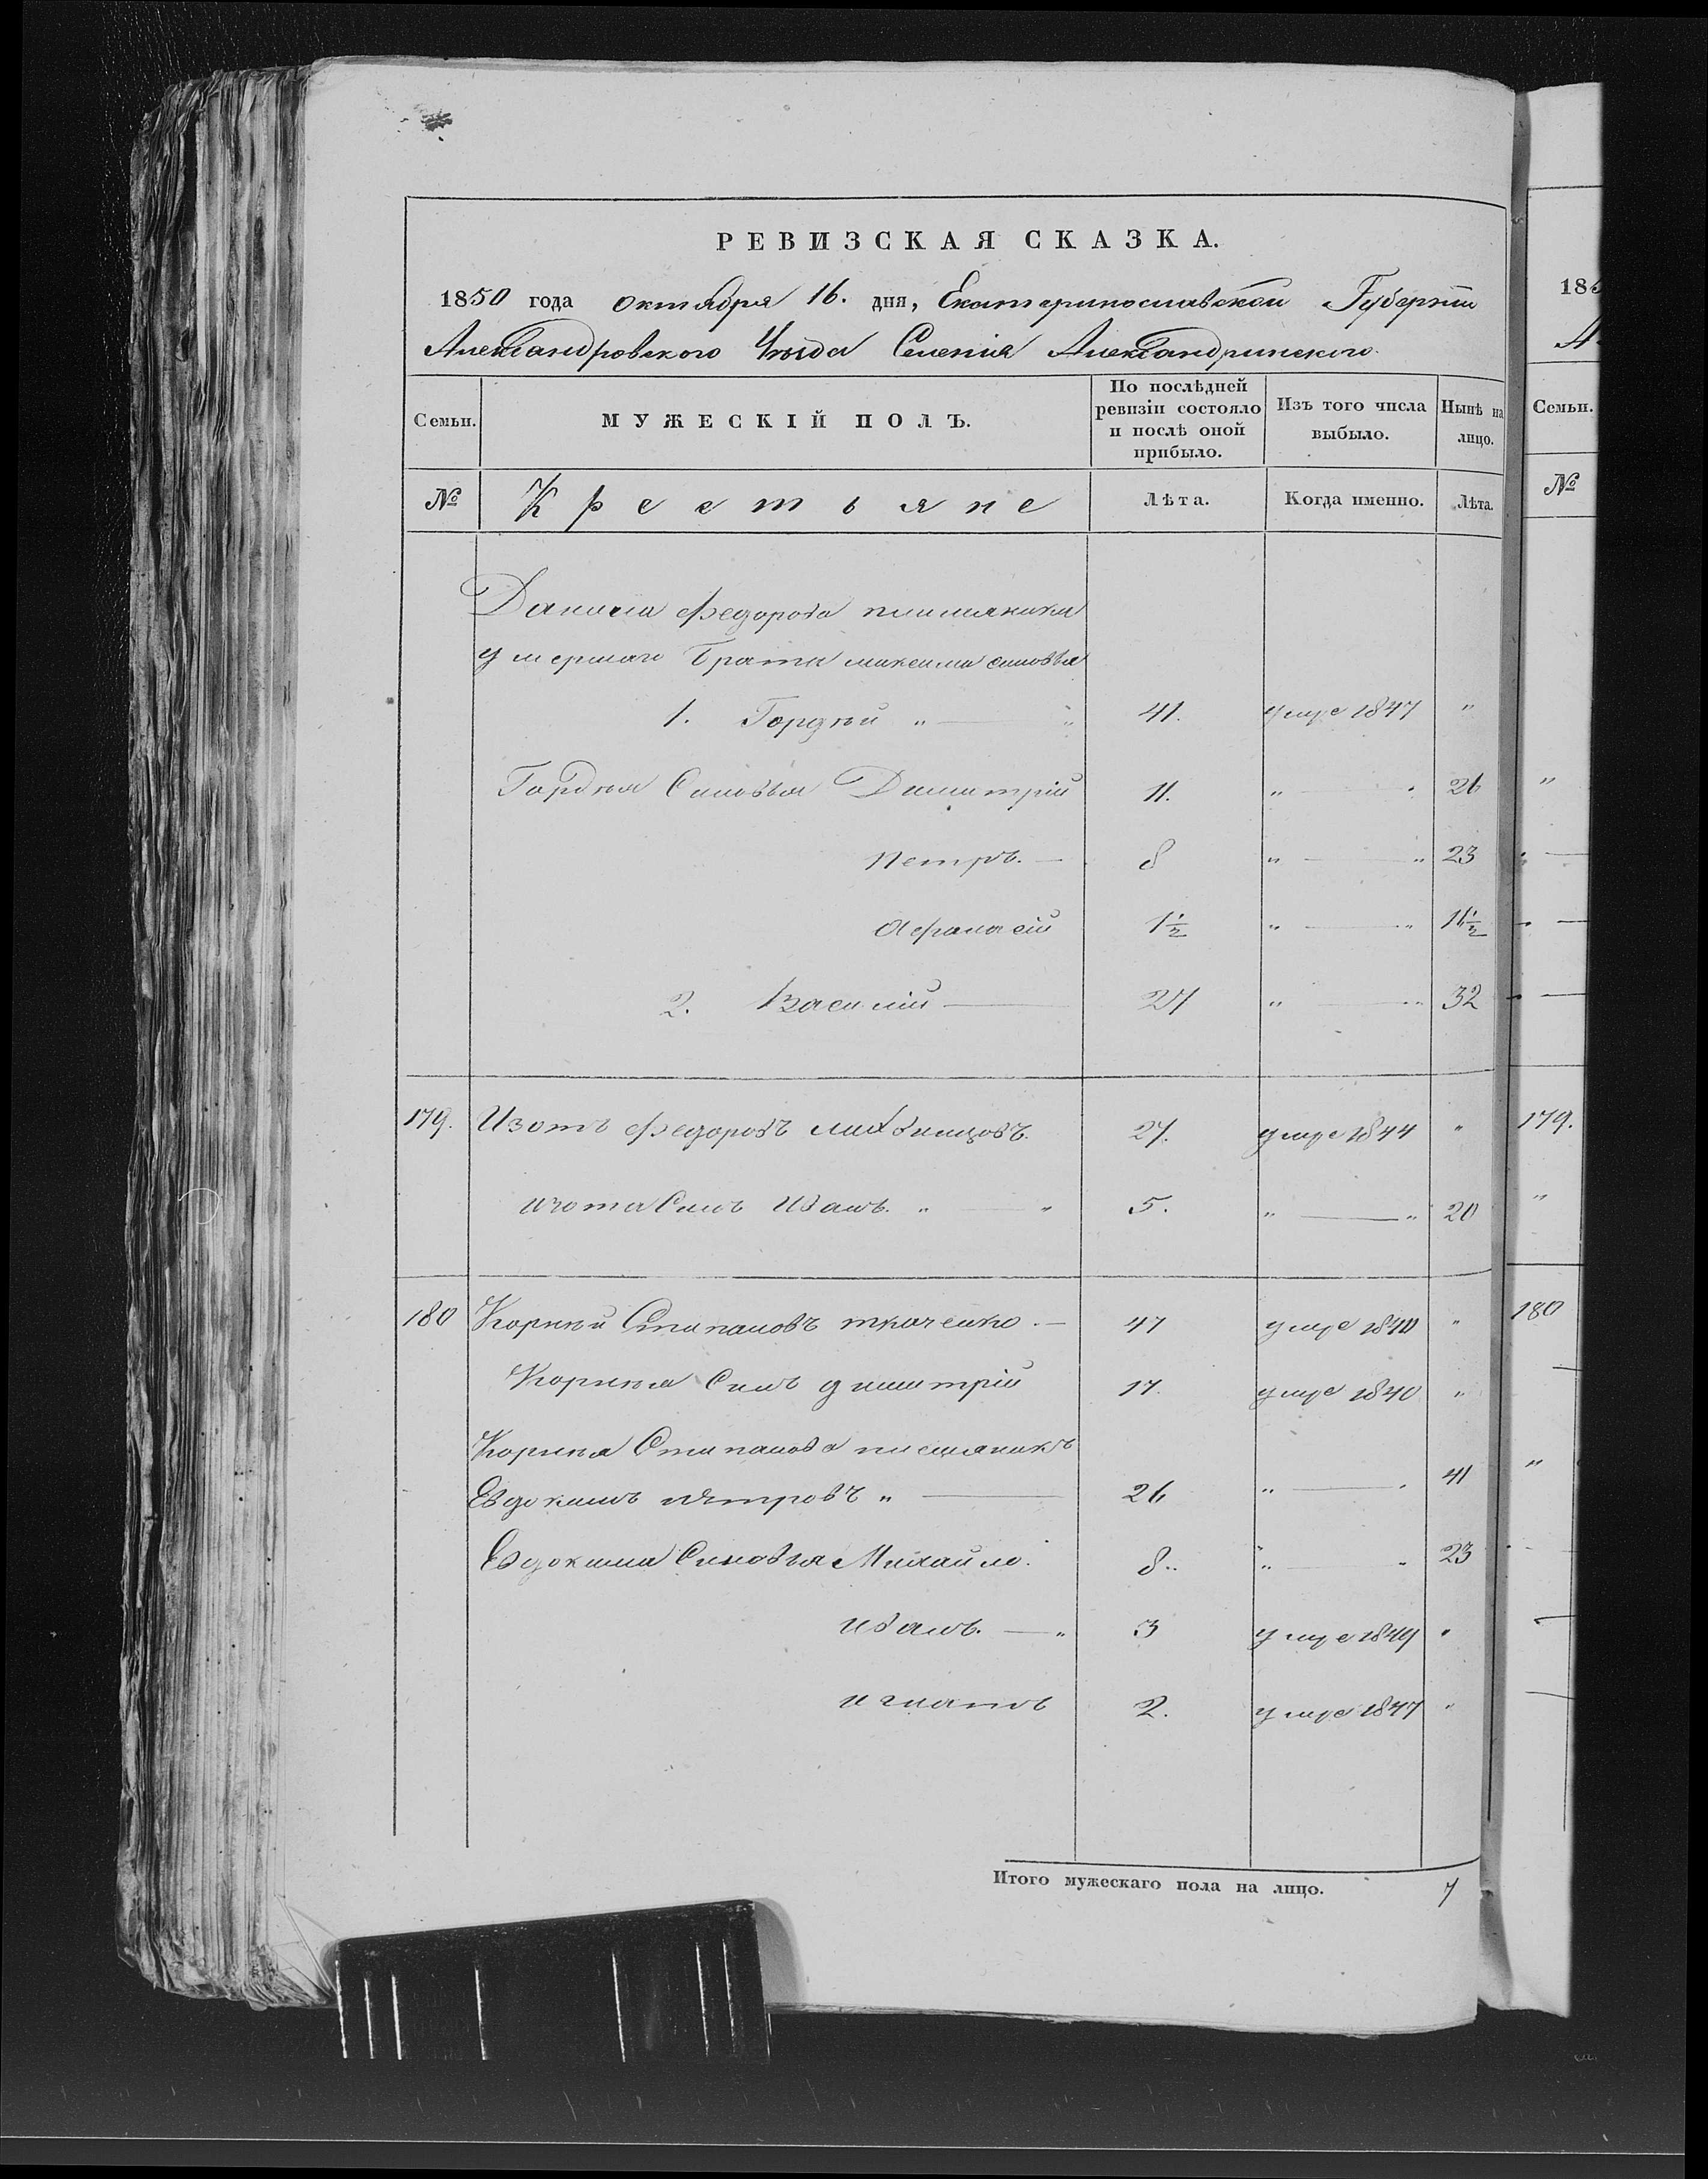 РЕВИЗСКАЯ СКАЗКА.
1850 года октября 16. дня, Екатеринославской Губерніи
Александровского Уѣзда Селенія Александринского.
Семьи. МУЖЕСКІЙ ПОЛЪ. По послѣдней ревизіи состояло и послѣ оной прибыло. Изъ того числа выбыло. Нынѣ на лицо.
№ Крестьяне Лѣта. Когда именно. Лѣта.
Данила Федорова племяники
умершаго Брата максима сыновья
1. Гордѣй „ — „ 41. умре 1847 „
Гордѣя Сыновья Димитрій 11. „ — „ 26
Петръ. — 8 „ — „ 23
Афанасій 1½ „ — „ 16½
2. Василій — 27 „ — „ 32
179. Изотъ Федоровъ 27. умре 1844 „
изота Сынъ Иванъ. „ — „ 5. „ — „ 20
180 Корнѣй Стипановъ ткаченко. — 47 умре „
Корнѣя Сынъ димитрій 17. умре 1840 „
Корнѣя Стипанова племяникъ
Евдокимъ пѣтровъ „ — 26 „ — „ 41
Евдокима Сыновья Михайло. 8 „ — „ 23
иванъ. — „ 3 умре 1849 „
игнатъ 2. умре 1847 „
Итого мужескаго пола на лицо. 7
185
А
Семьи.
№
179.
180